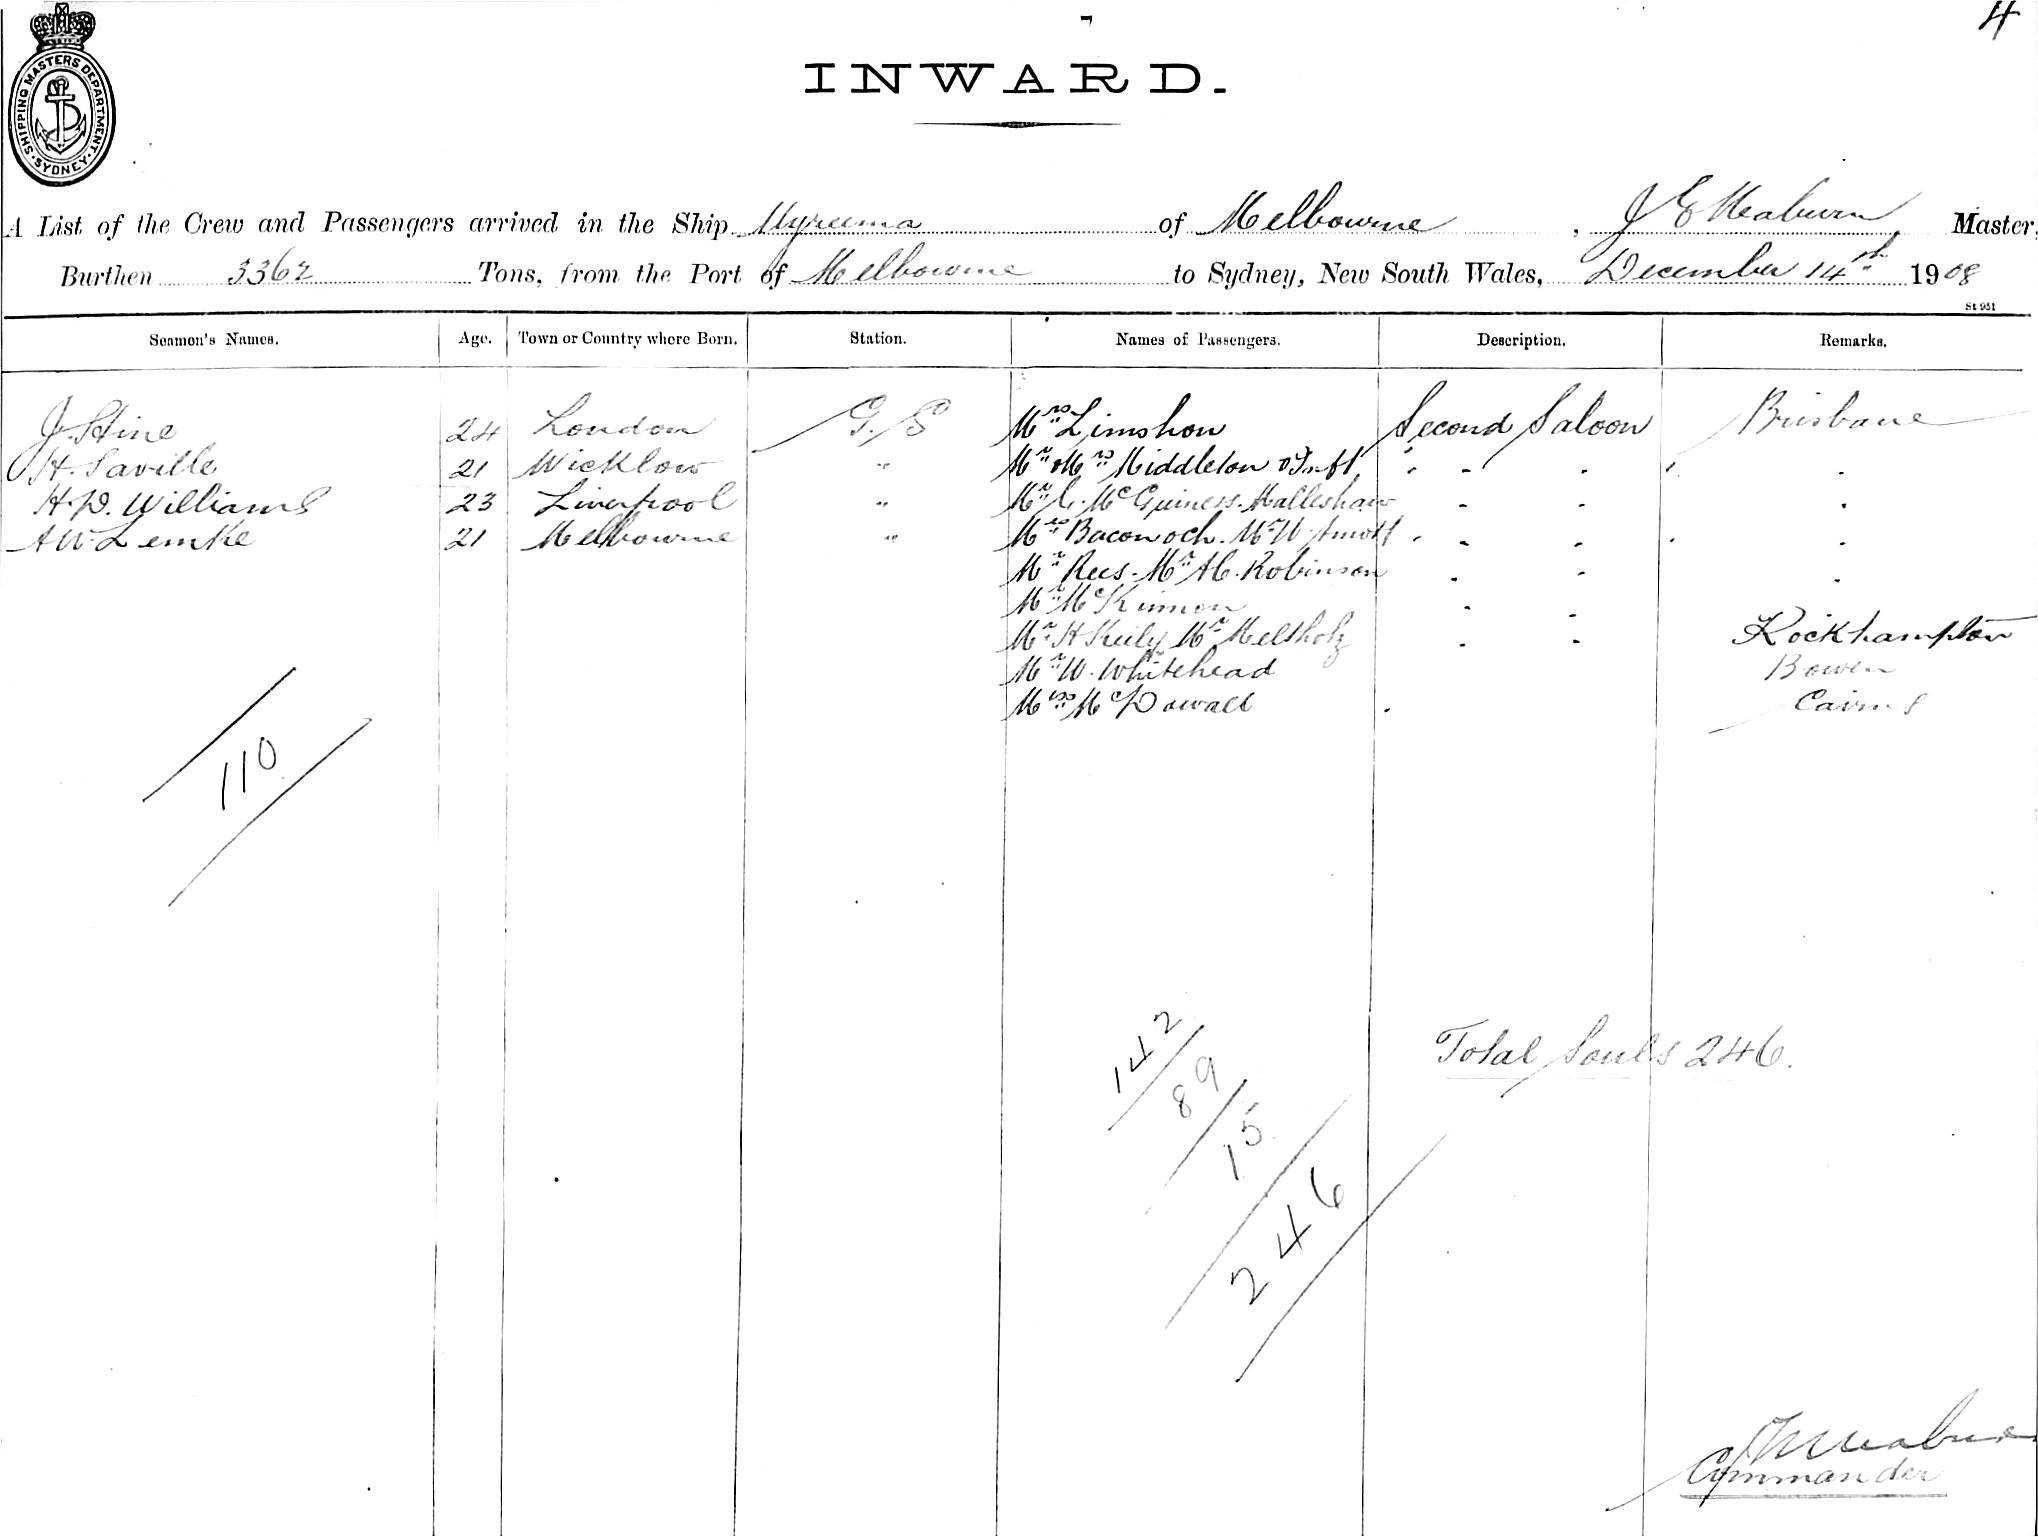 4
INWARD.
SHIPPING MASTERS DEPARTMENT. SYDNEY.
A List of the Crew and Passengers arrived in the Ship Wyreema of Melbourne, J E Meaburn Master,
Burthen 3362 Tons, from the Port of Melbourne to Sydney, New South Wales, December 14th 1908
St 951
Seamen's Names. Age. Town or Country where Born. Station. Names of Passengers. Description. Remarks.
J. Stine 24 London G.S Mrs Limshon Second Saloon Brisbane
H. Saville 21 Wicklow " Mr & Mrs Middleton & Inft
H.D. Williams 23 Liverpool " Mr C. McGuiness. Malleshaw
A W Lemke 21 Melbourne " Mrs Baconoch. Mr W Amott
Mr Rees. Mr A C. Robinson
Mr McKinnon
Mr H Keily Mr Meltholz Rockhampton
Mr W. Whitehead Bowen
Miss McDowall Cairns
110
142
89
15
246
Total Souls 246.
Commander